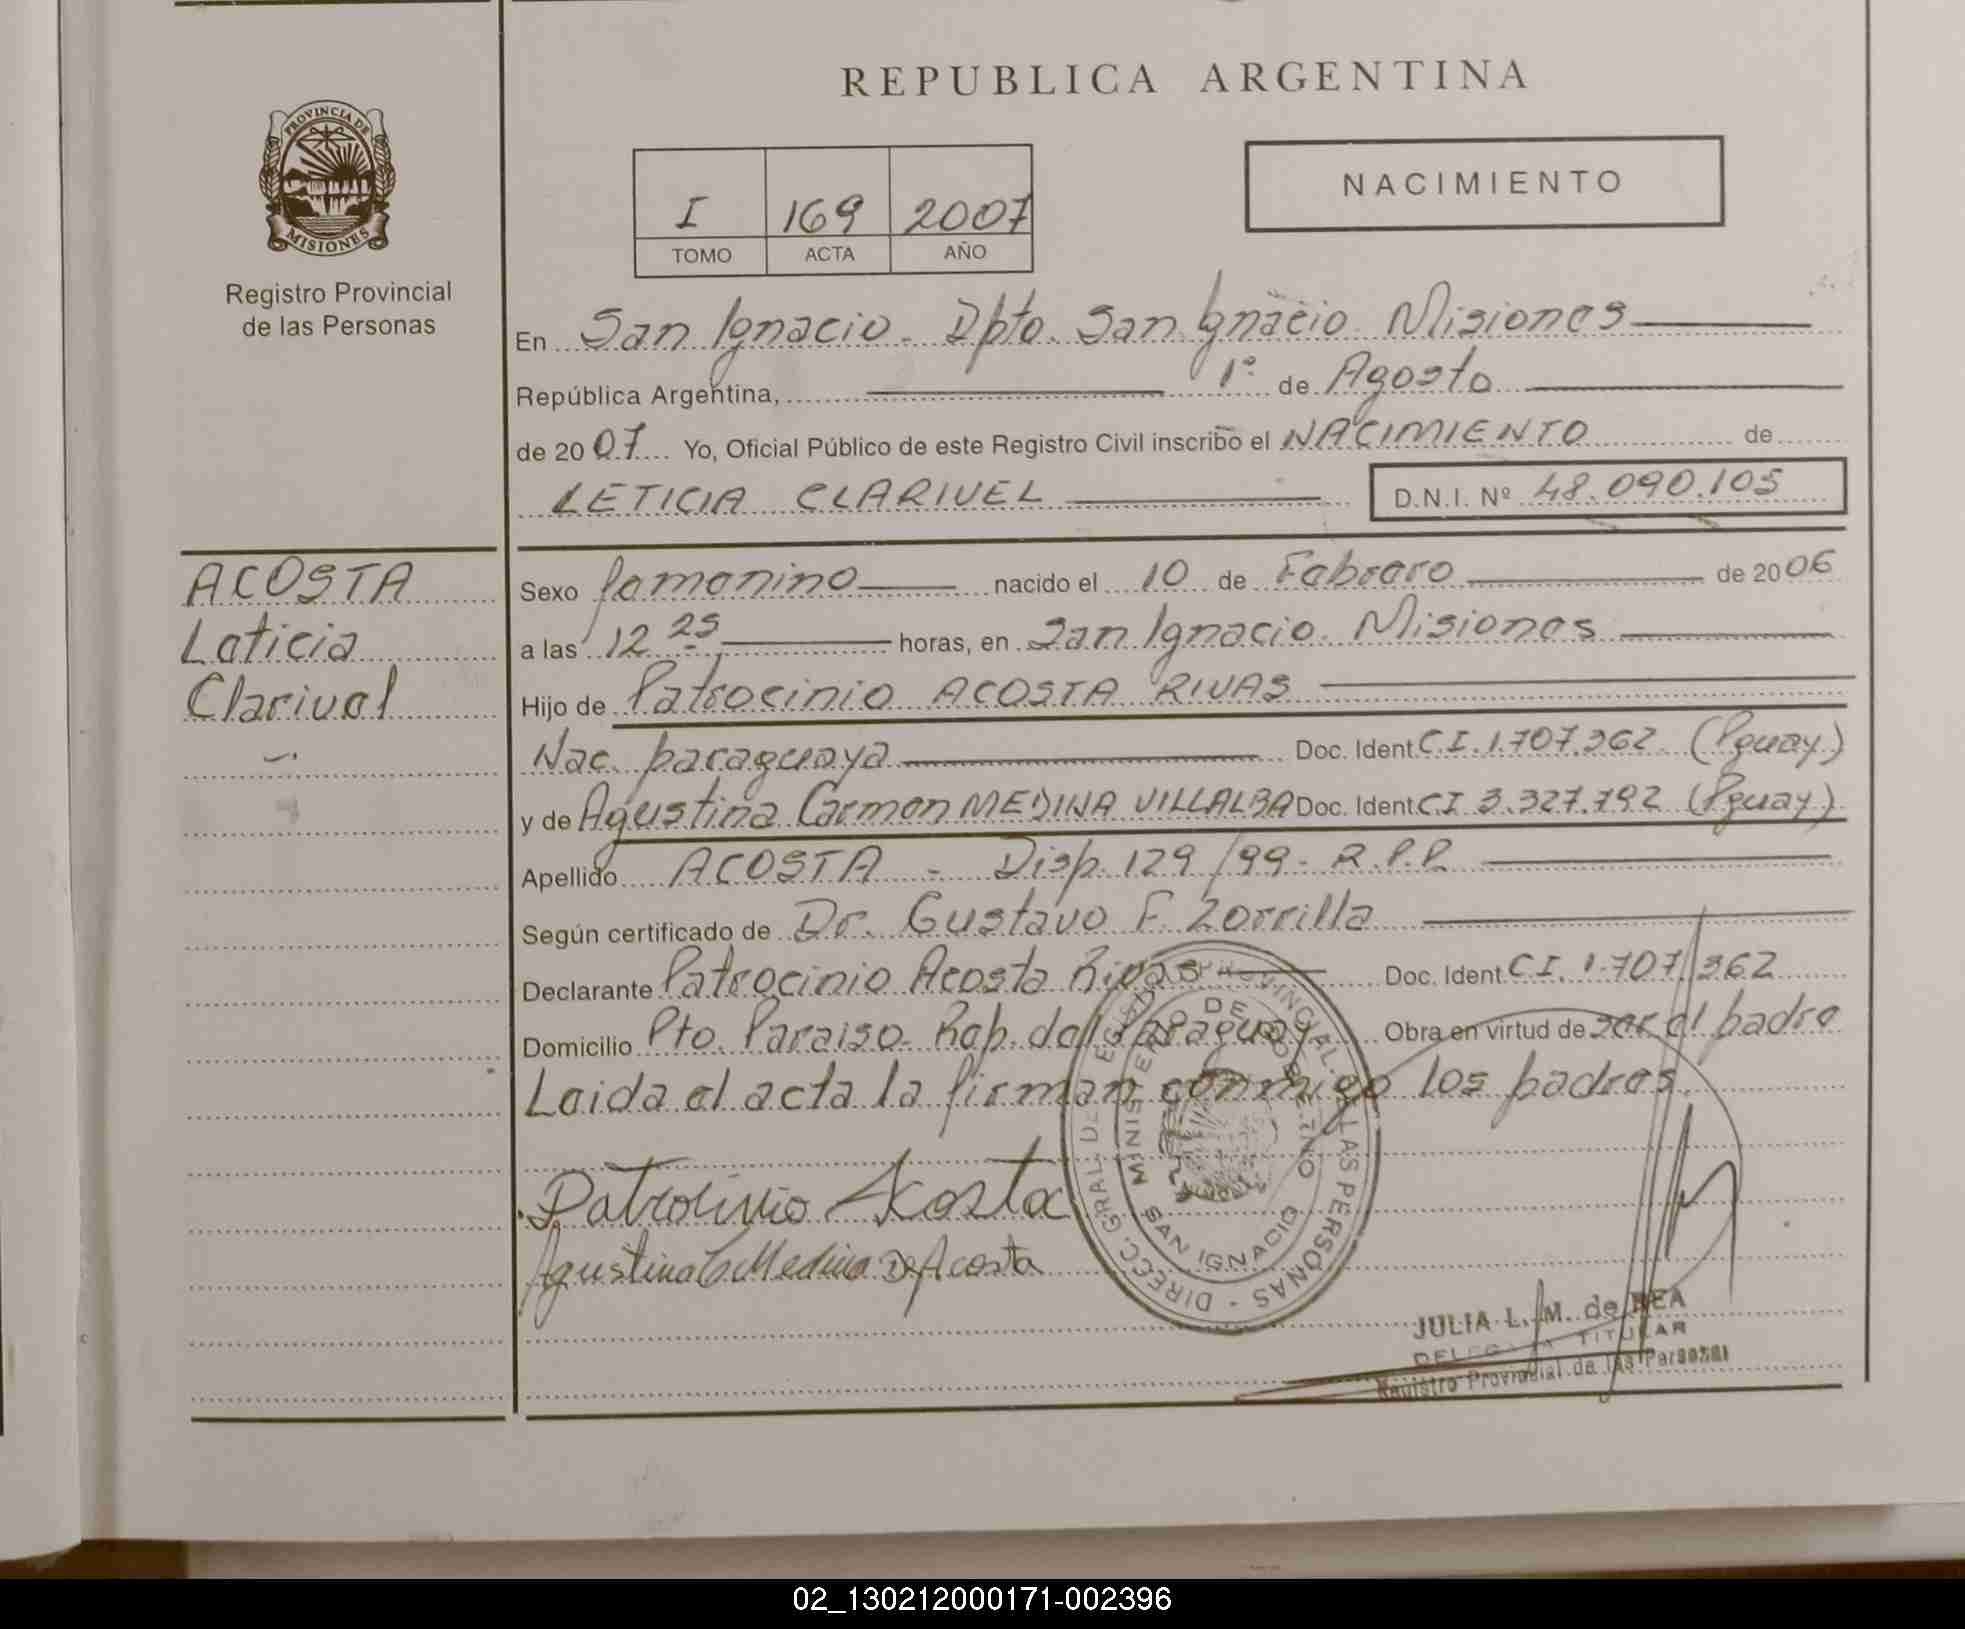 REPUBLICA ARGENTINA
PROVINCIA DE MISIONES
Registro Provincial
de las Personas
I 169 2007
TOMO ACTA AÑO
NACIMIENTO
En San Ignacio - Dpto. San Ignacio Misiones
República Argentina, 1º de Agosto
de 2007 Yo, Oficial Público de este Registro Civil inscribo el NACIMIENTO de
LETICIA CLARIVEL D.N.I. Nº 48.090.105
ACOSTA
Leticia
Clarivel
Sexo femenino nacido el 10 de Febrero de 2006
a las 12 25 horas, en San Ignacio. Misiones
Hijo de Patrocinio ACOSTA RIVAS
Nac. paraguaya Doc. Ident C.I. 1.707.362 (Pguay)
y de Agustina Carmen MEDINA VILLALBA Doc. Ident CI 3.327.792 (Pguay)
Apellido ACOSTA - Disp. 129/99 - R.P.P.
Según certificado de Dr. Gustavo F. Zorrilla
Declarante Patrocinio Acosta Rivas Doc. Ident C.I. 1.707.362
Domicilio Pto. Paraiso - Rep. del Paraguay Obra en virtud de ser el padre
Leida el acta la firman conmigo los padres.
Patrocinio Acosta
Agustina C Medina De Acosta
MINISTERIO DE GOBIERNO
SAN IGNACIO
JULIA L. M. de REA
DELEGADA TITULAR
Registro Provincial de las Personas
02_130212000171-002396